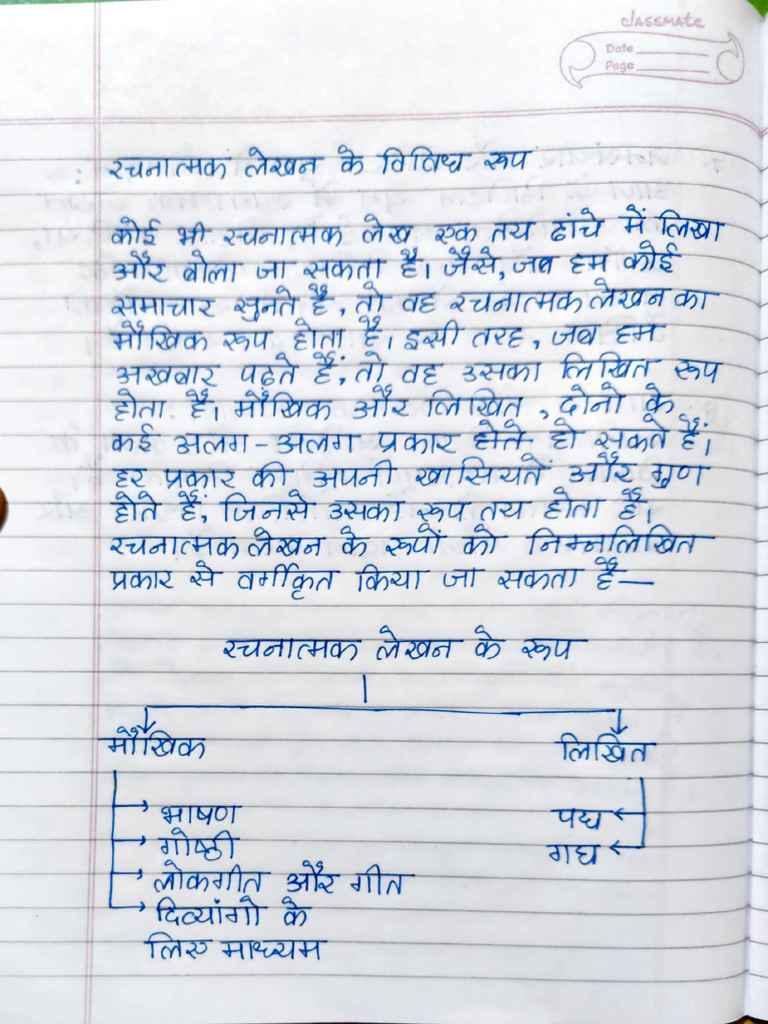 classmate
Date
Page
रचनात्मक लेखन के विविध रूप
कोई भी रचनात्मक लेख एक तय ढांचे में लिखा
और बोला जा सकता है। जैसे, जब हम कोई
समाचार सुनते है, तो वह रचनात्मक लेखन का
मौखिक रूप होता है। इसी तरह, जब हम
अखबार पढ़ते हैं, तो वह उसका लिखित रूप
होता है। मौखिक और लिखित, दोनो के
कई अलग-अलग प्रकार होते हो सकते हैं।
हर प्रकार की अपनी खासियतें और गुण
होते हैं, जिनसे उसका रूप तय होता है।
रचनात्मक लेखन के रूपों को निम्नलिखित
प्रकार से वर्गीकृत किया जा सकता है—
रचनात्मक लेखन के रूप
मौखिक लिखित
भाषण पद्य
गोष्ठी गद्य
लोकगीत और गीत
दिव्यांगो के
लिए माध्यम